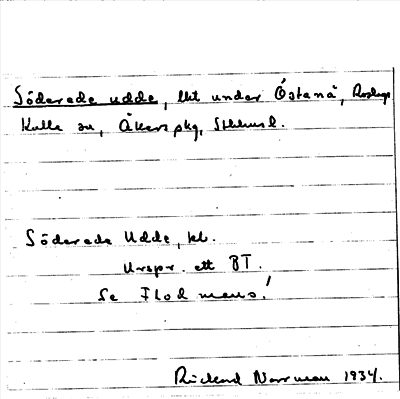 Söderede udde, lht under Östanå, Roslags
Kulla sn, Åkers skg, Sthlms l.
Söderede Udde, kl.
Urspr. ett BT.
Se Flodmans!
Rickard Norrman 1934.